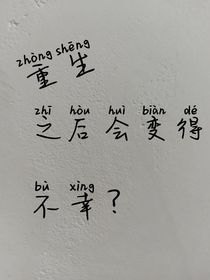 zhòng shēng
重生
zhī hòu huì biàn dé
之后会变得
bù xìng
不幸？